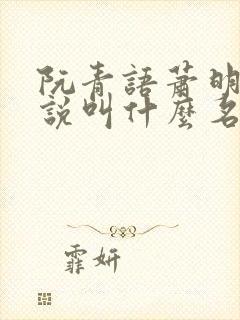 阮青語蕭明
說叫什麼名
霏妍